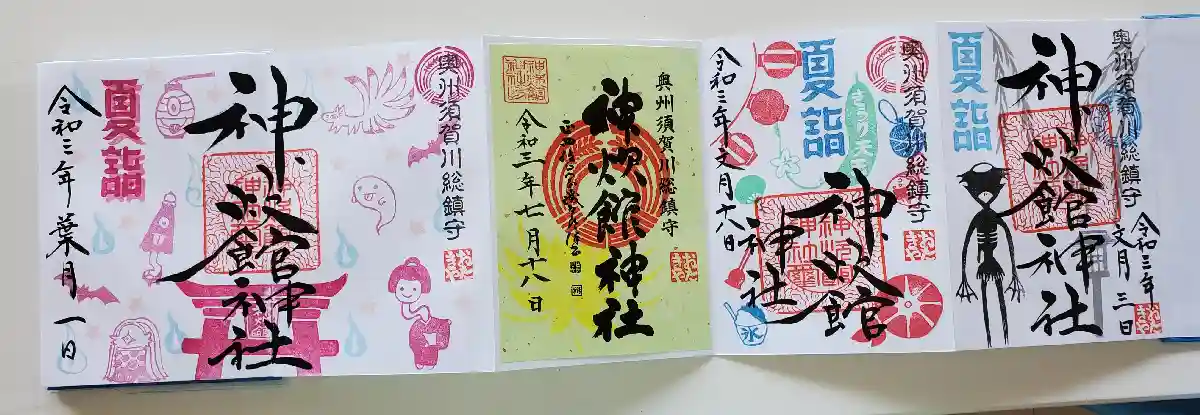 奥州須賀川総鎮守
神炊館神社
夏詣
令和三年
文月三日
奥州須賀川総鎮守
神炊館
神社
夏詣
きうり天王
氷
令和三年文月十八日
奥州須賀川総鎮守
神炊館神社
令和三年七月十八日
奥州須賀川総鎮守
神炊館神社
夏詣
令和三年葉月一日